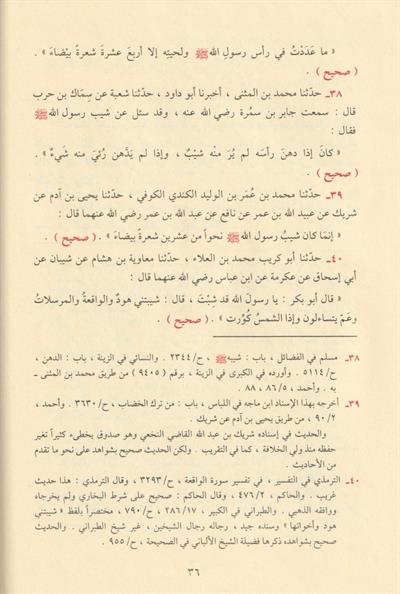 « ما عَدَدْتُ في رأس رسولِ الله ﷺ ولحيتِه إلا أربعَ عشرةَ شعرةً بيْضاءَ » .
( صحيح ) .
٣٨ـ حدّثنا محمد بن المثنى ، أخبرنا أبو داود ، حدّثنا شعبة عن سِمَاك بن حرب
قال : سمعت جابر بن سمُرة رضي الله عنه ، وقد سئل عن شيب رسول الله ﷺ
فقال :
« كانَ إذا دهنَ رأسَه لم يُرَ منْه شيْبٌ ، وإذا لم يَدَّهن رُئيَ منه شيءٌ » .
( صحيح ) .
٣٩ـ حدّثنا محمد بن عُمَر بن الوليد الكندي الكوفي ، حدّثنا يحيى بن آدم عن
شريك عن عبيد الله بن عمر عن نافع عن عبد الله بن عمر رضي الله عنهما قال :
« إنمَا كان شيْبُ رسولِ الله ﷺ نحواً من عشرين شعرةً بيضاءَ » . ( صحيح ) .
٤٠ـ حدّثنا أبو كريب محمد بن العلاء ، حدّثنا معاوية بن هشام عن شيبان عن
أبي إسحاق عن عكرمة عن ابن عباس رضي الله عنهما قال :
« قال أبو بكر : يا رسولَ الله قد شِبْتَ ، قال : شيبتني هودٌ والواقعةُ والمرسلاتُ
وعَمّ يتساءلون وإذا الشمسُ كُوِّرت » . ( صحيح ) .
٣٨ـ مسلم في الفضائل ، باب : شيبه ﷺ ، ح/ ٢٣٤٤ . والنسائي في الزينة ، باب : الدهن ،
ح/ ٥١١٤ . وأورده في الكبرى في الزينة ، برقم ( ٩٤٠٥ ) من طريق محمد بن المثنى ـ
به . وأحمد ، ٨٦/٥ ، ٨٨ .
٣٩ـ أخرجه بهذا الإسناد ابن ماجه في اللباس ، باب : من ترك الخضاب ، ح/ ٣٦٣٠ . وأحمد ،
٩٠/٢ ، من طريق يحيى بن آدم عن شريك .
والحديث في إسناده شريك بن عبد الله القاضي النخعي وهو صدوق يخطىء كثيراً تغير
حفظه منذ ولي الخلافة ، كما في التقريب . ولكن الحديث صحيح بشواهد على نحو ما تقدم
من الأحاديث .
٤٠ـ الترمذي في التفسير ، في تفسير سورة الواقعة ، ح/ ٣٢٩٣ ، وقال الترمذي : هذا حديث
غريب . والحاكم ، ٤٧٦/٢ ، وقال الحاكم : صحيح على شرط البخاري ولم يخرجاه
ووافقه الذهبي . والطبراني في الكبير ، ٢٨٦/١٧ ، ح/ ٧٩٠ ، مختصراً بلفظ « شيبتني
هود وأخواتها » وسنده جيد ، رجاله رجال الشيخين ، غير شيخ الطبراني . والحديث
صحيح بشواهده ذكرها فضيلة الشيخ الألباني في الصحيحة ، ح/ ٩٥٥ .
٣٦